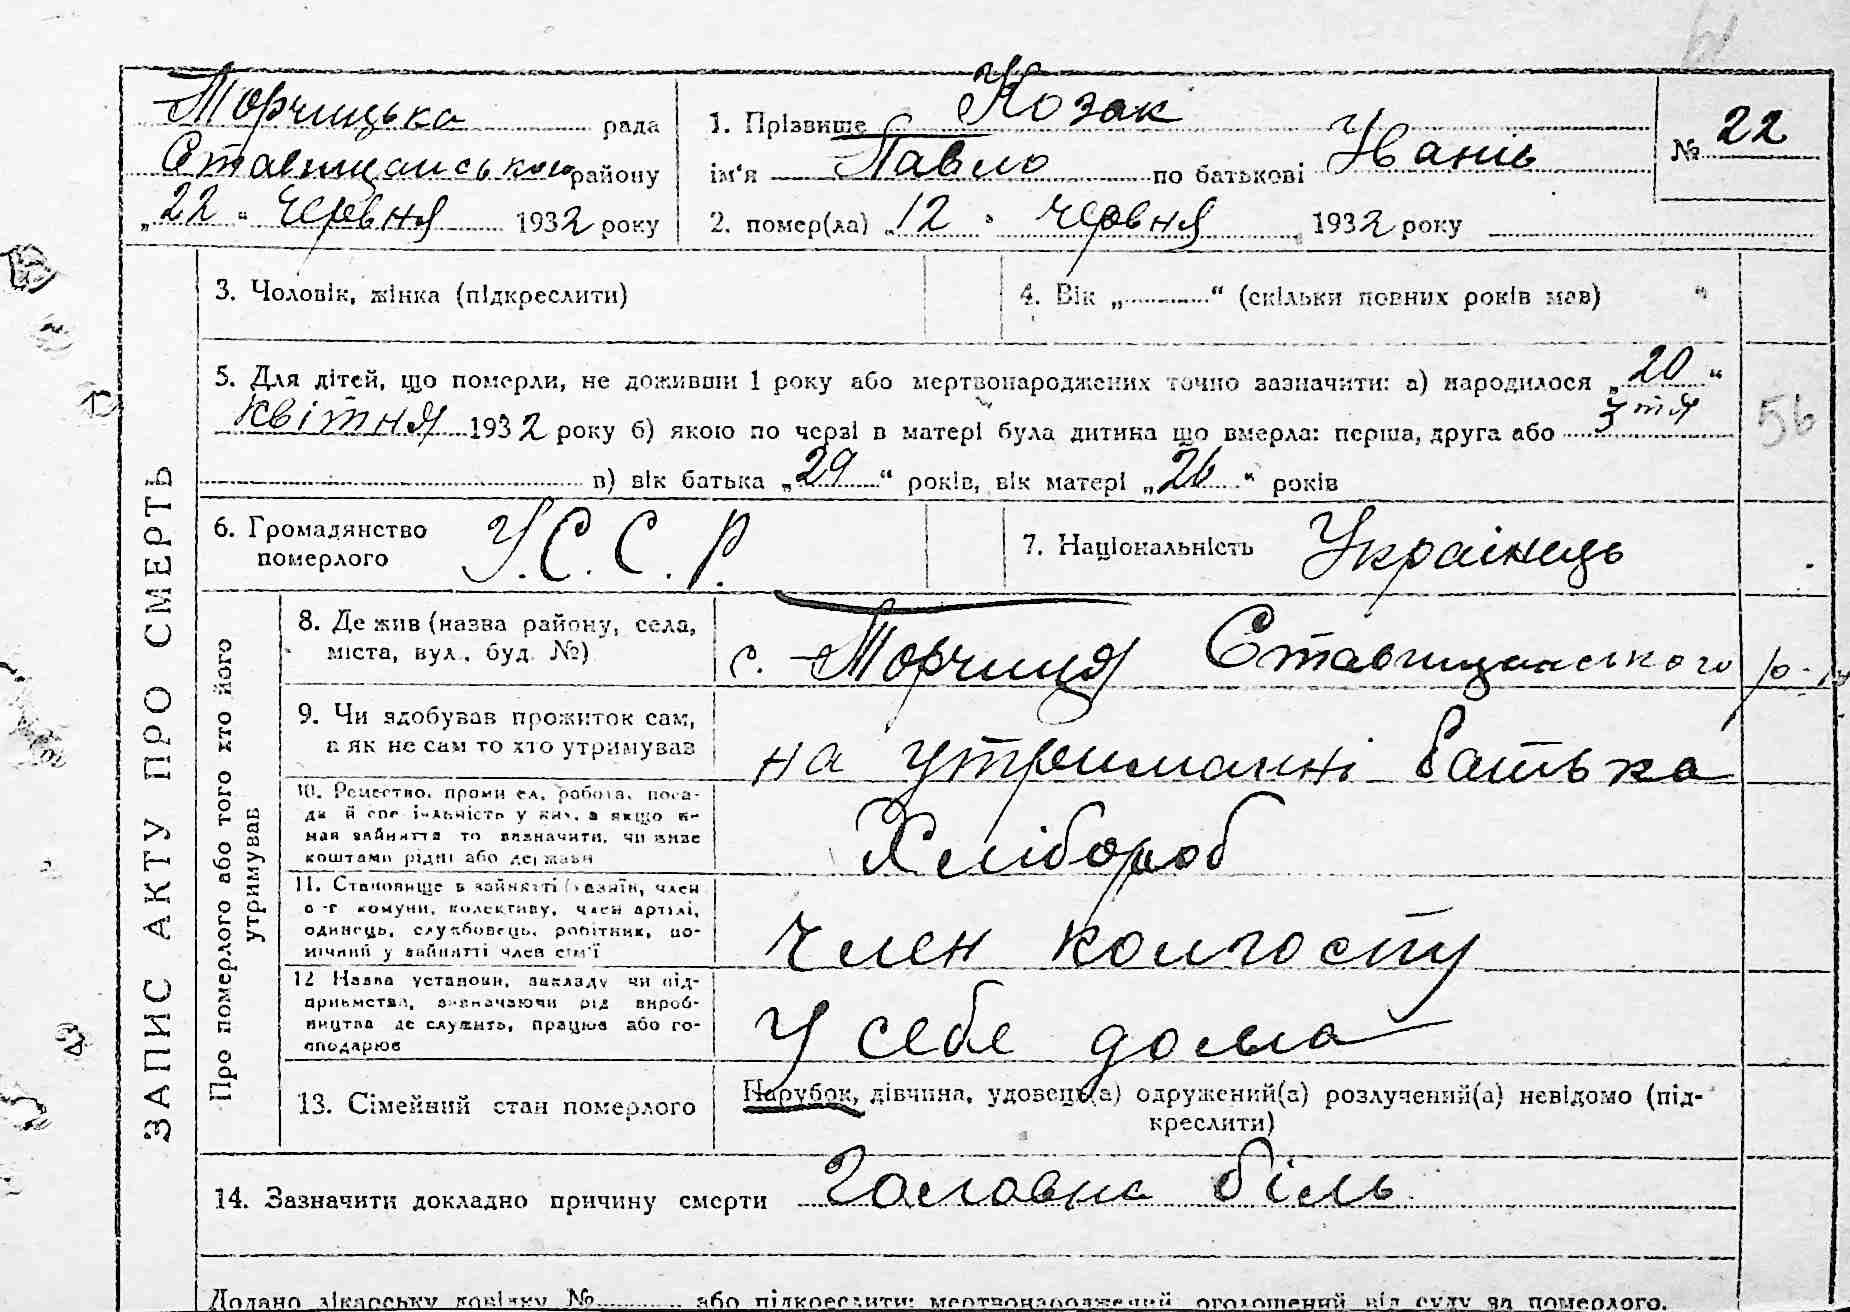 Торчицька рада
Ставищанського району
„22“ Червня 1932 року
1. Прізвище Козак
ім'я Павло по батькові Івань
2. помер(ла) „12 “ червня 1932 року
№ 22
3. Чоловік, жінка (підкреслити)
4. Вік „ “ (скільки повних років мав) “
5. Для дітей, що померли, не доживши 1 року або мертвонароджених точно зазначити: а) народилося „20“
квітня 1932 року б) якою по черзі в матері була дитина що вмерла: перша, друга або 3 тя
в) вік батька „29“ років, вік матері „26“ років
56
6. Громадянство
померлого
У.С.С.Р.
7. Національність Українець
ЗАПИС АКТУ ПРО СМЕРТЬ
Про померлого або того хто його
утримував
8. Де жив (назва району, села,
міста, вул., буд. №)
с. Торчиця Ставищанського р-ну
9. Чи здобував прожиток сам,
а як не сам то хто утримував
на утриманні батька
10. Ремество, промисел, робота, поса-
да й спеціяльність у них, а якщо не
мав зайняття то визначити, чи живе
коштами рідні або держави
Хлібороб
11. Становище в зайнятті (хазяїн, член
с-г комуни, колективу, член артілі,
одинець, службовець, робітник, по-
мічний у зайнятті член сім'ї
член колгоспу
12 Назва установи, закладу чи під-
приємства, зазначаючи рід вироб-
ництва де служить, працює або го-
сподарює
У себе дома
13. Сімейний стан померлого
Парубок, дівчина, удовець(а) одружений(а) розлучений(а) невідомо (під-
креслити)
14. Зазначити докладно причину смерти Головна біль
Додано лікарську довідку № або підкреслити: мертвонароджений, оголошений від суду за померлого.